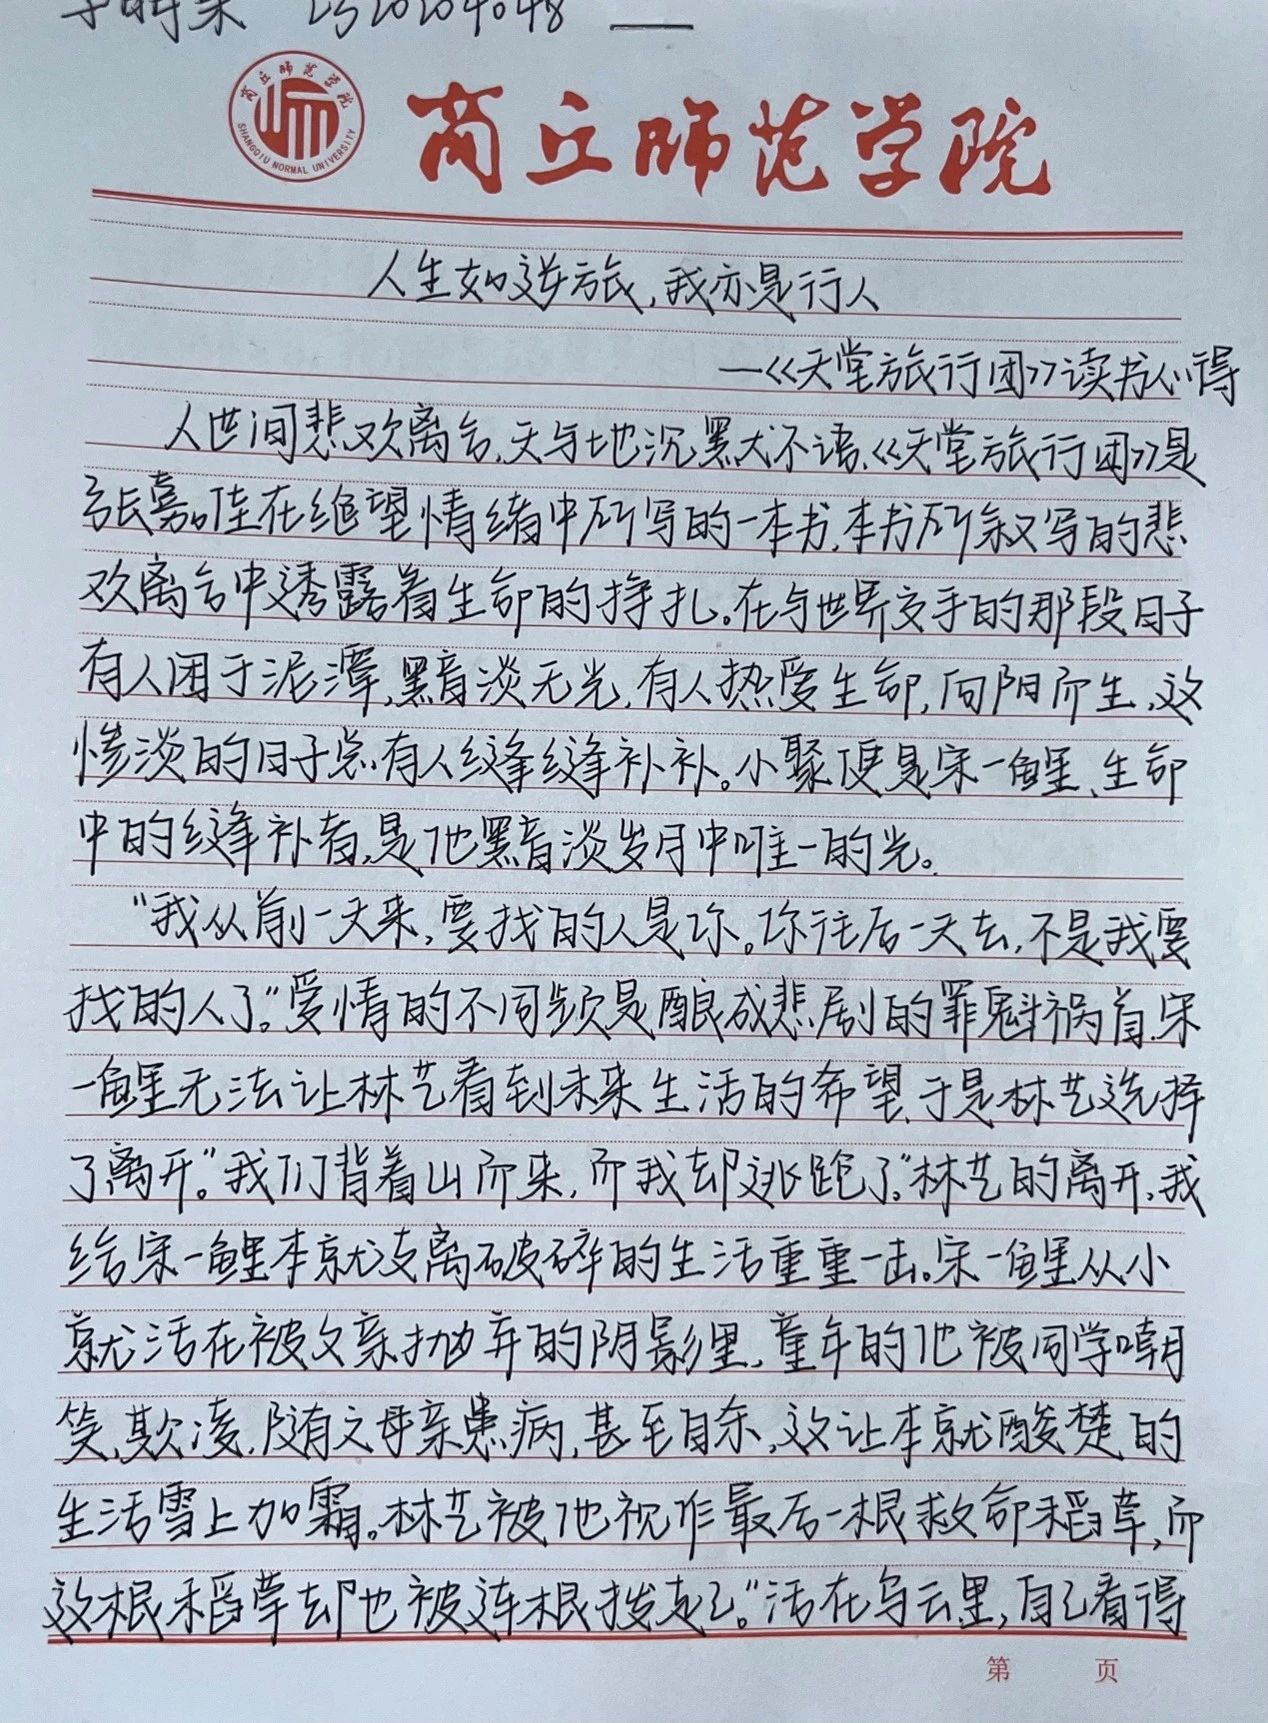 商丘师范学院
SHANGQIU NORMAL UNIVERSITY
商丘师范学院
人生如逆旅，我亦是行人
—《天堂旅行团》读书心得
人世间悲欢离合，天与地沉默犬不语，《天堂旅行团》是
张嘉佳在绝望情绪中所写的一本书，本书所叙写的悲
欢离合中透露着生命的挣扎。在与世界交手的那段日子
有人困于泥潭，黑音淡无光，有人热爱生命，向阳而生，这
惨淡的日子总有人缝缝补补。小聚便是宋一鲤、生命
中的缝补者，是他黑音淡岁月中唯一的光。
“我从前一天来，要找的人是你。你往后一天去，不是我要
找的人了。”爱情的不同频是酿成悲剧的罪魁祸首，宋
一鲤无法让林艺看到未来生活的希望，于是林艺选择
了离开。“我们背着山而来，而我却逃跑了。”林艺的离开，我
给宋一鲤本就支离破碎的生活重重一击。宋一鲤从小
就活在被父亲抛弃的阴影里，童年的他被同学嘲
笑，欺凌，随有之母亲患病，甚至自杀，这让本就酸楚的
生活雪上加霜。林艺被他视作最后一根救命稻草，而
这根稻草却也被连根拔起了。“活在乌云里，自己看得
第 页